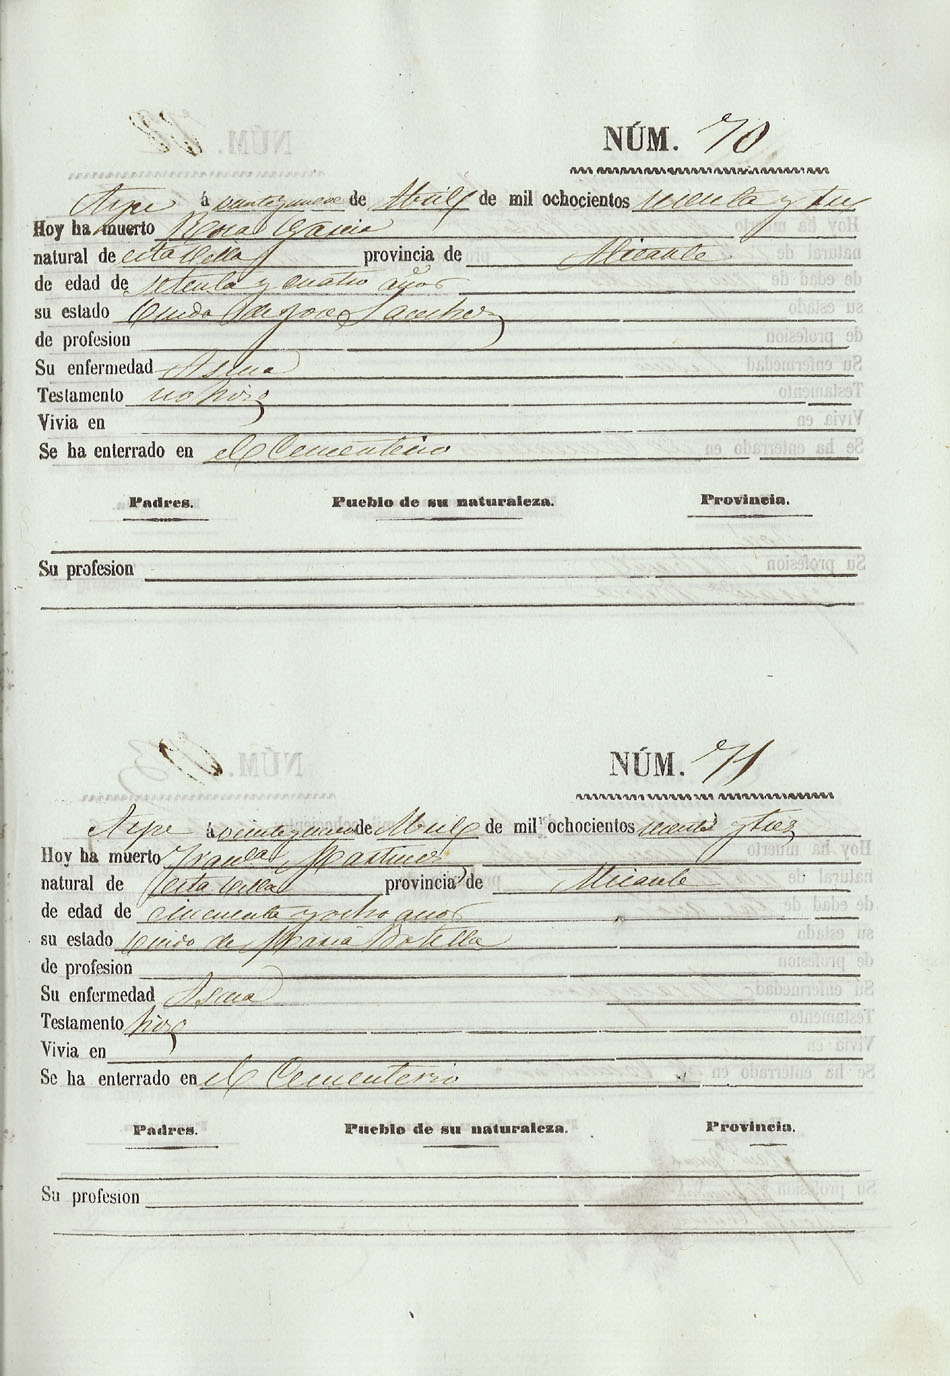 NÚM. 70
Aspe á veinteynueve de Abril de mil ochocientos sesenta y tres
Hoy ha muerto Rosa Garcia
natural de esta Villa provincia de Alicante
de edad de setenta y cuatro años
su estado Viuda de Jose Sanchez
de profesion
Su enfermedad Asma
Testamento no hizo
Vivia en
Se ha enterrado en el Cementerio
Padres. Pueblo de su naturaleza. Provincia.
Su profesion
NÚM. 71
Aspe á veinteynueve de Abril de mil ochocientos sesenta ytres
Hoy ha muerto Martinez
natural de esta Villa provincia de Alicante
de edad de cincuenta yocho años
su estado Viudo de Maria Botella
de profesion
Su enfermedad Asma
Testamento hizo
Vivia en
Se ha enterrado en el Cementerio
Padres. Pueblo de su naturaleza. Provincia.
Su profesion